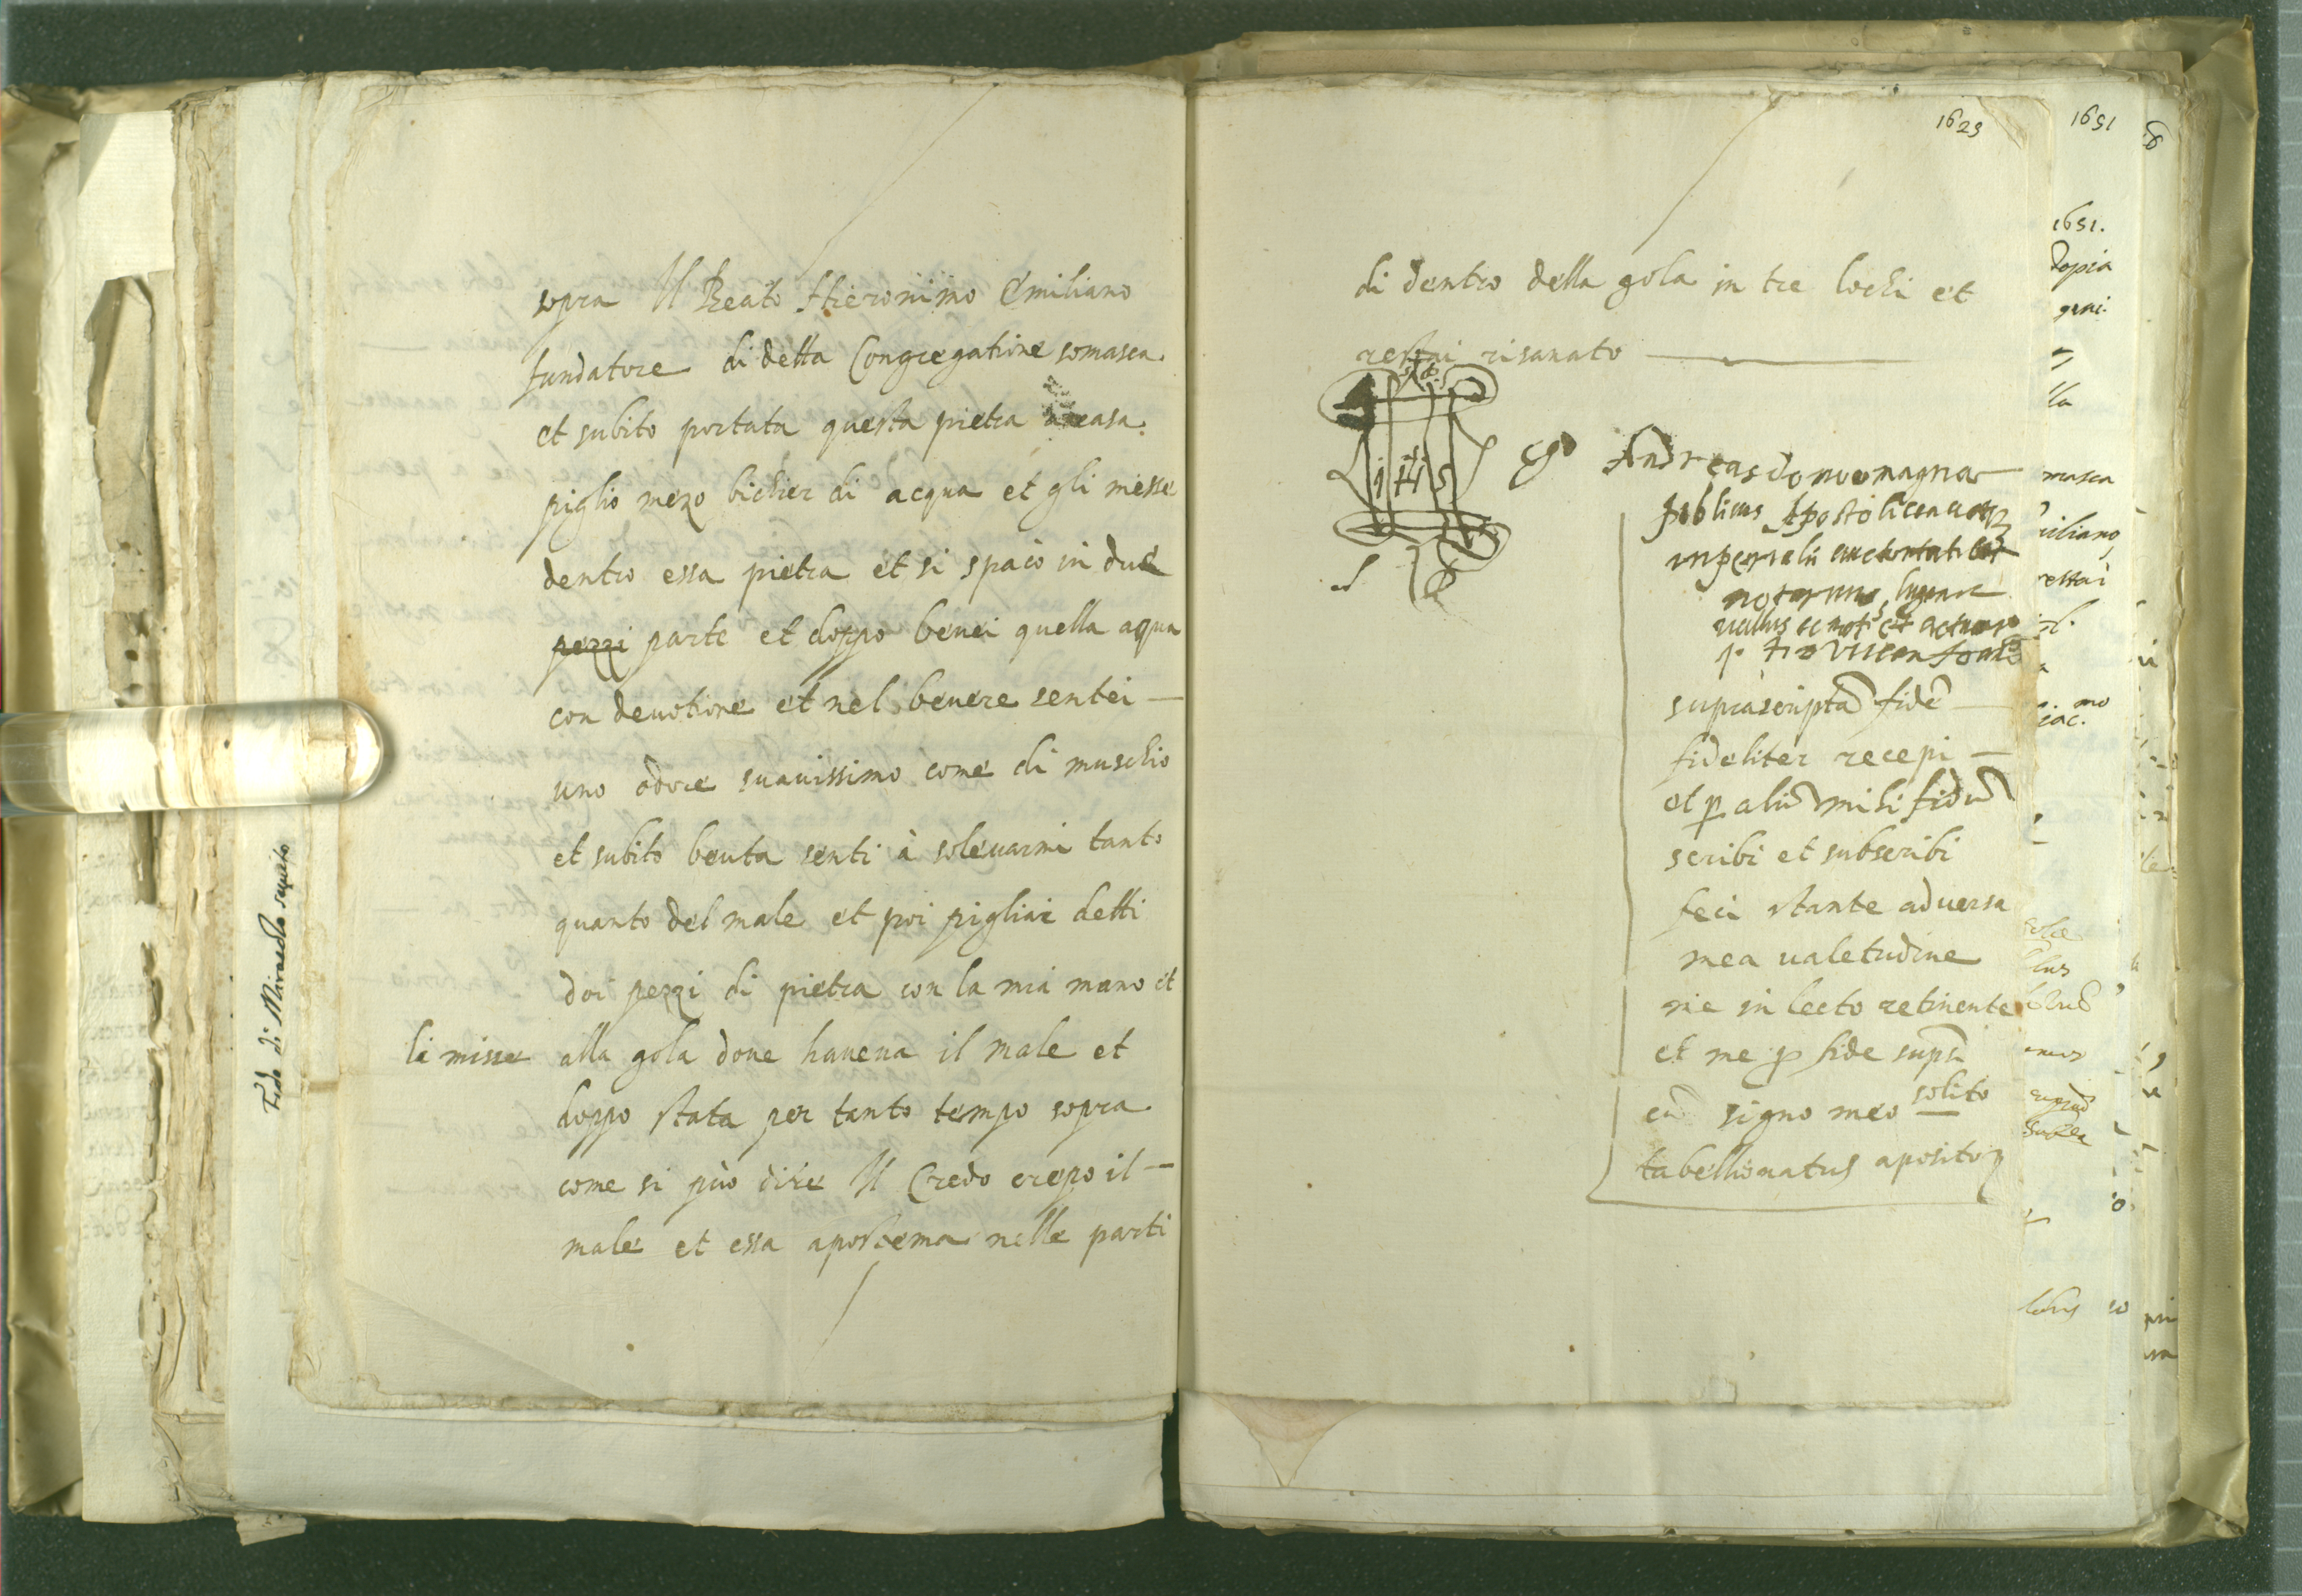 sopra Il Beato Hieronimo Emiliano
fundatore di detta Congregatione somasca
et subito portata questa pietra à casa
piglio mezo bichier di acqua et gli messe
dentro essa pietra et si spacò in due
pezzi parte et doppo beuei quella aqua
con deuotione et nel beuere sentei —
uno odore suauissimo come di muschio
et subito beuta senti à soleuarmi tanto
quanto del male et poi pigliai detti
doi pezzi di pietra con la mia mano et
li misse alla gola doue haueua il male et
doppo stata per tanto tempo sopra
come si può dire Il Credo crepo il —
male et essa apostema nelle parti
Fede di Miracolo seguito
1625
di dentro della gola in tre lochi et
restai risanato
IHS
Ego Andreas
publicus Apostolica
imperiali
notarius
suprascriptā fidē —
fideliter recepi —
et p aliū mihi fidū
scribi et subscribi
feci stante aduersa
mea ualetudine
me in lecto retinente
et me p fide supsi
cū signo meo solito
tabellionatus aposito
1651
1651.
dopia
masca
iliano
restai